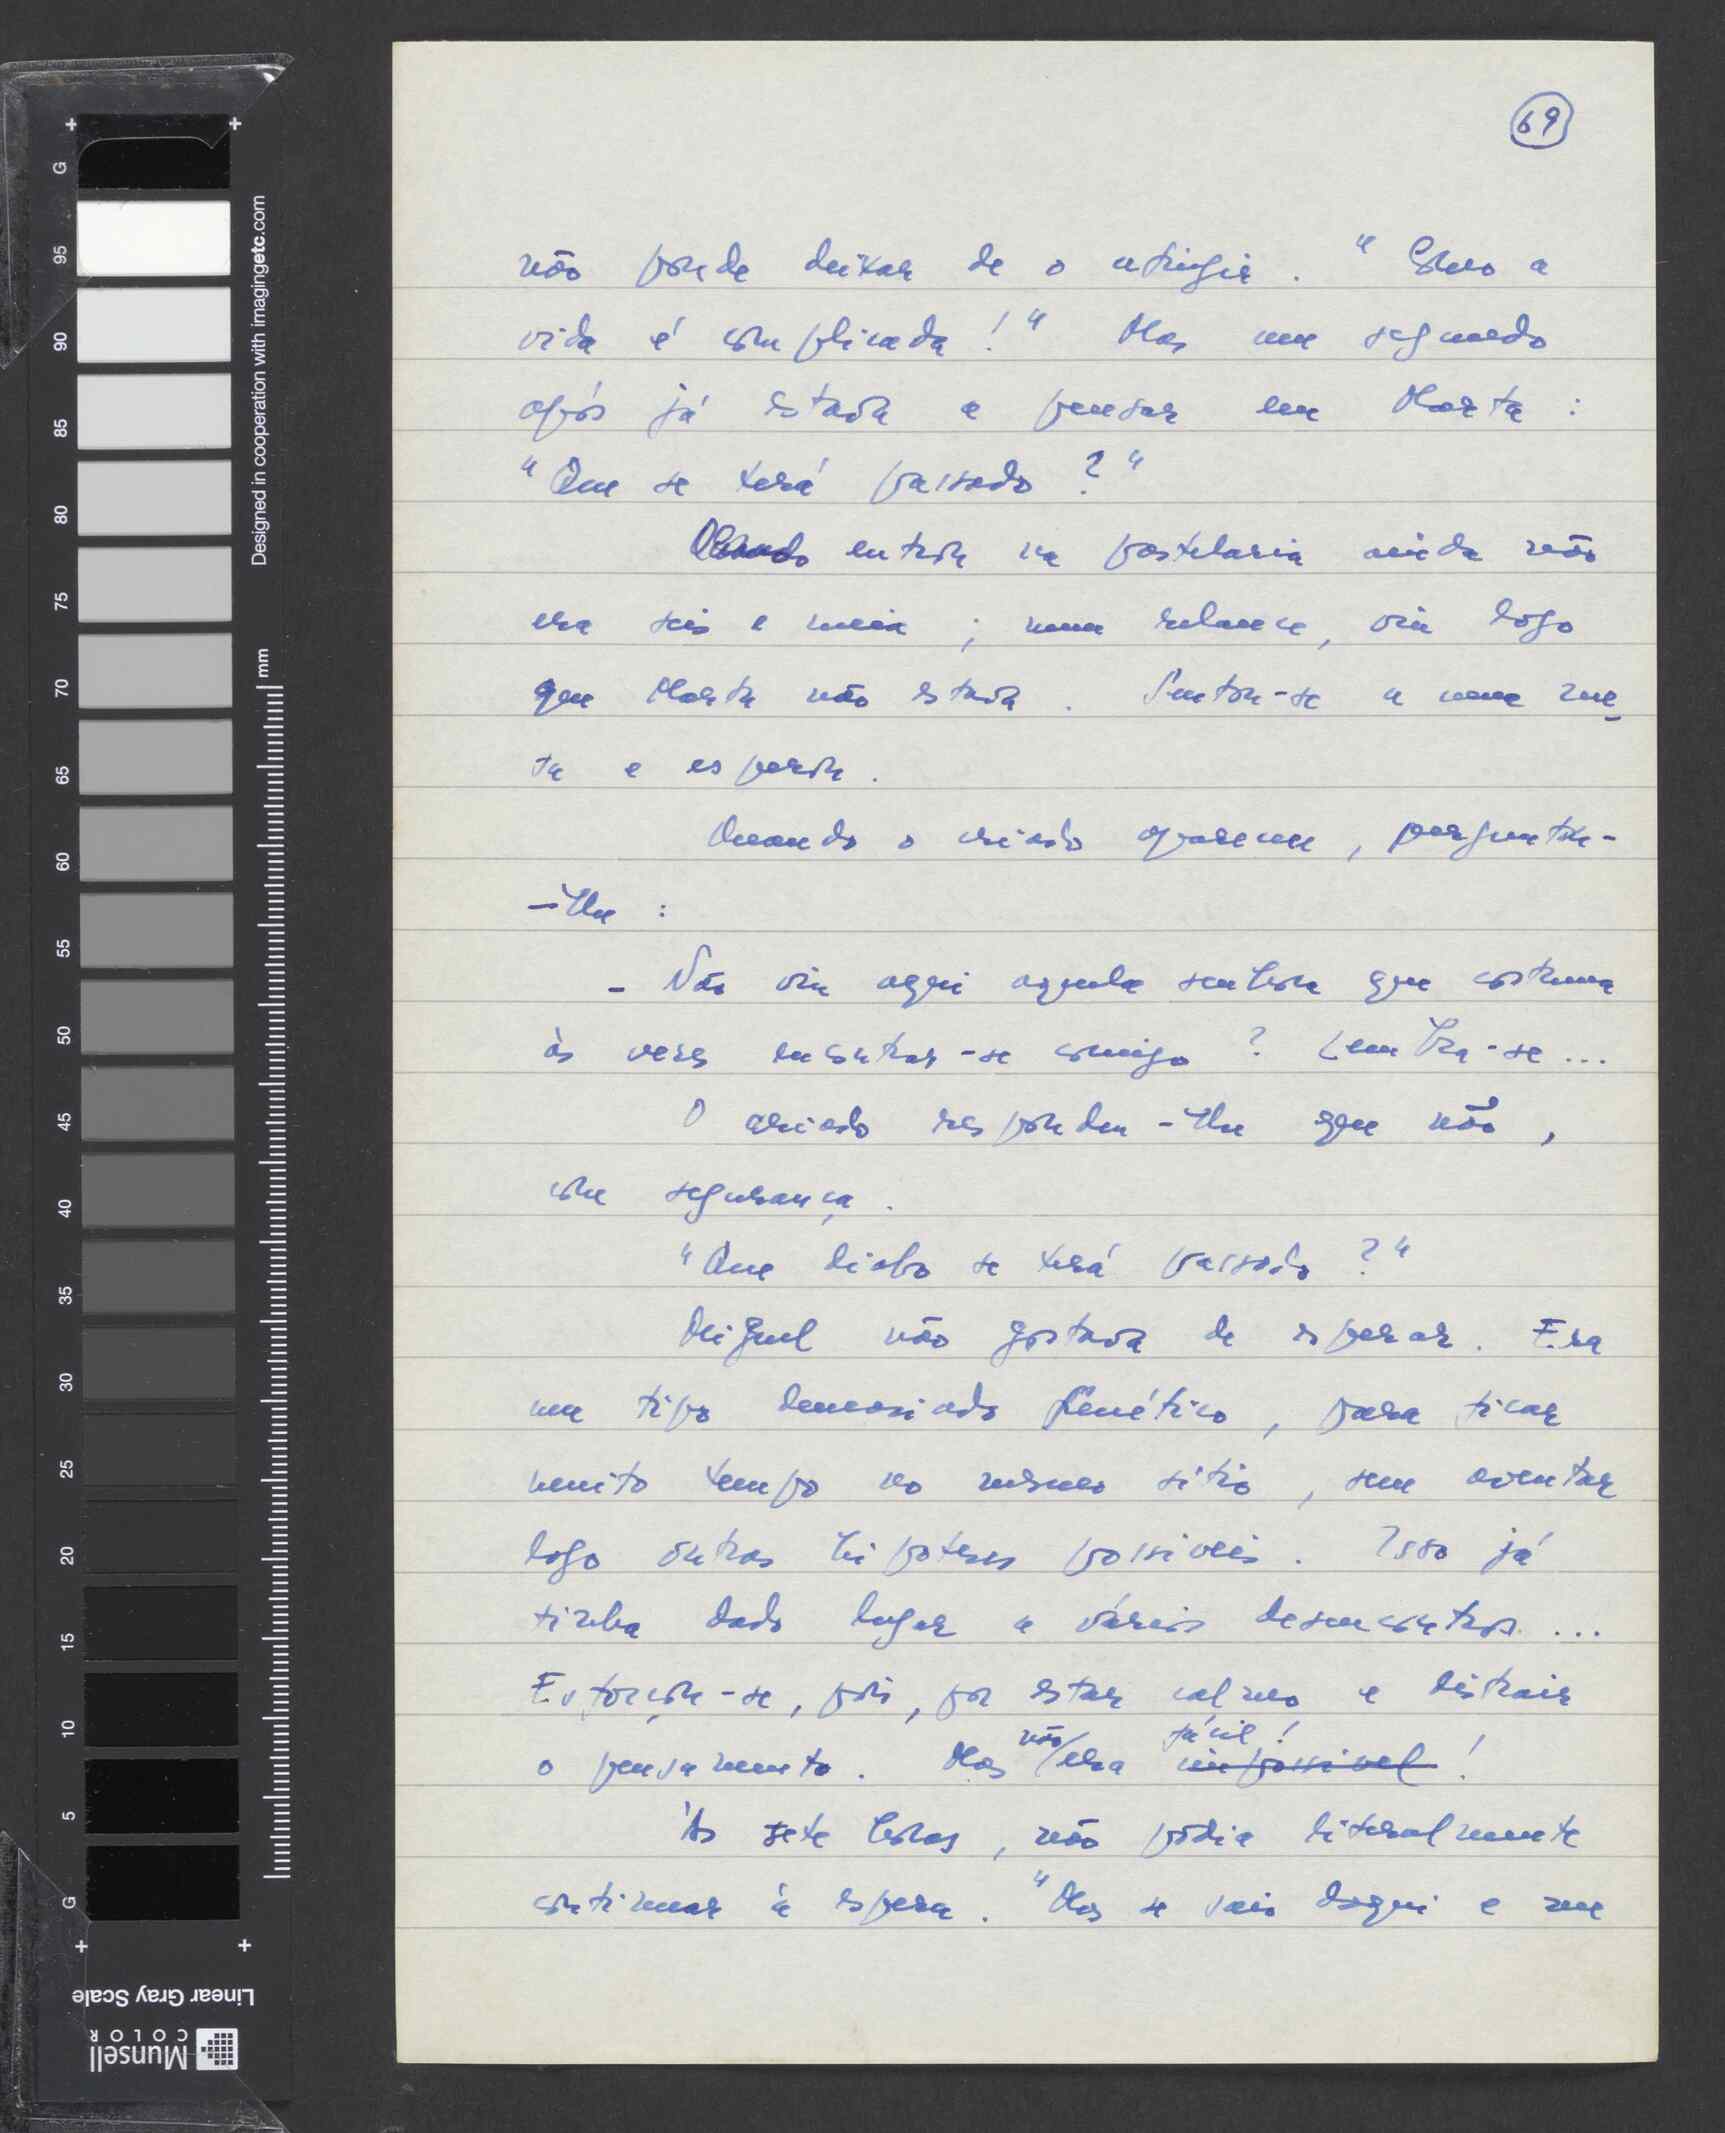 69
não poude deixar de o atingir. "Como a
vida é complicada!" Mas um segundo
após já estava a pensar em Marta:
"Que se terá passado?"
Quando entrou na pastelaria ainda não
era seis e meia; num relance, viu logo
que Marta não estava. Sentou-se a uma me-
sa e esperou.
Quando o criado apareceu, perguntou-
-lhe:
- Não viu aqui aquela senhora que costuma
às vezes encontrar-se comigo? Lembra-se...
O criado respondeu-lhe que não,
com segurança.
"Que diabo se terá passado?"
Miguel não gostava de esperar. Era
um tipo demasiado frenético, para ficar
muito tempo no mesmo sítio, sem aventar
logo outras hipóteses possiveis. Isso já
tinha dado lugar a vários desencontros...
Esforçou-se, pois, por estar calmo e distrair
o pensamento. Mas não era fácil! impossivel!
Às sete horas, não podia literalmente
continuar à espera. "Mas se saio daqui e me
G
95
90
85
80
75
70
65
60
55
50
45
40
35
30
25
20
15
10
5
G
mm
Designed in cooperation with imagingetc.com
Linear Gray Scale
Munsell
COLOR